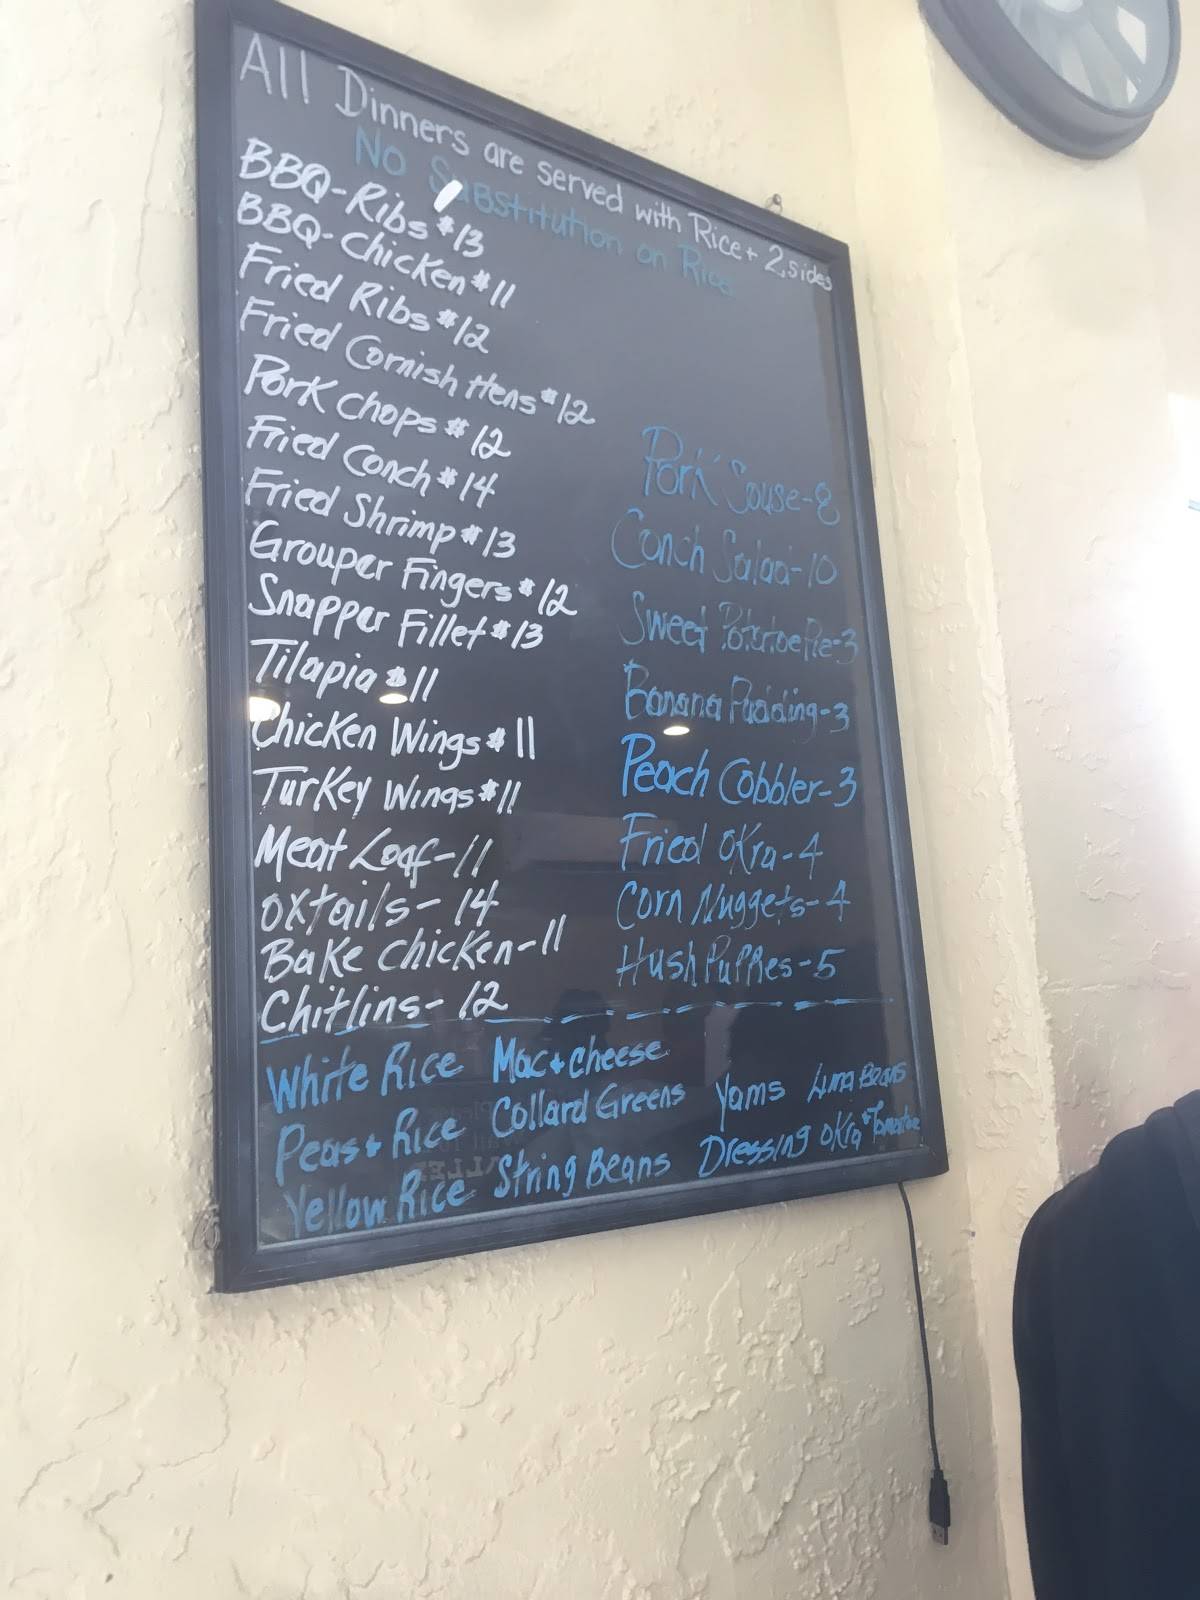 All Dinners are served with Rice + 2 sides
No Substitution on Rice
BBQ-Ribs $13
BBQ-Chicken $11
Fried Ribs $12
Fried Cornish Hens $12
Pork Chops $12
Fried Conch $14
Fried Shrimp $13
Grouper Fingers $12
Snapper Fillet $13
Tilapia $11
Chicken Wings $11
Turkey Wings $11
Meat Loaf-11
oxtails-14
Bake Chicken-11
Chitlins-12
Pork Souse-8
Conch Salad-10
Sweet Potatoe Pie-3
Banana Pudding-3
Peach Cobbler-3
Fried Okra-4
Corn Nuggets-4
Hush Puppies-5
White Rice
Peas + Rice
Yellow Rice
Mac + cheese
Collard Greens
String Beans
Yams
Dressing
Lima Beans
Okra + Tomatoe